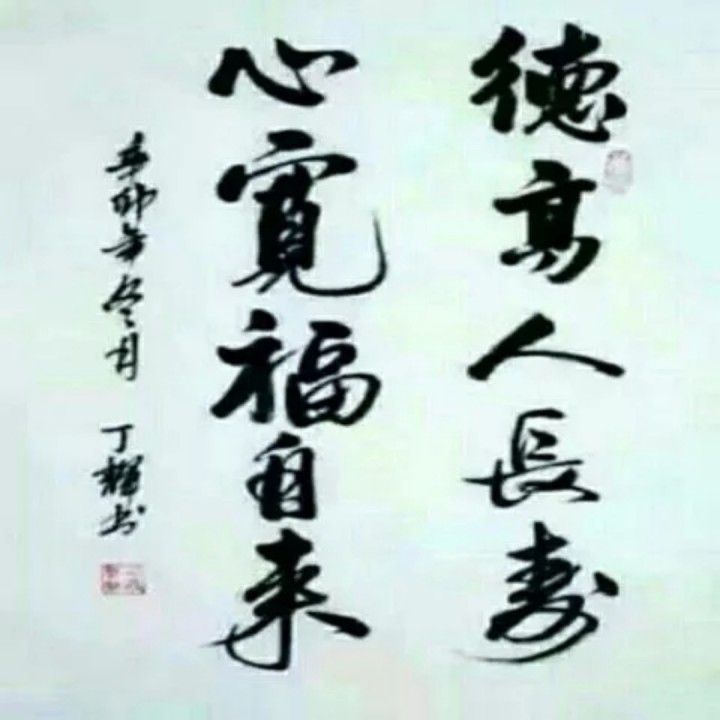 德高人長寿
心寬福自来
辛卯年冬月 丁輝书